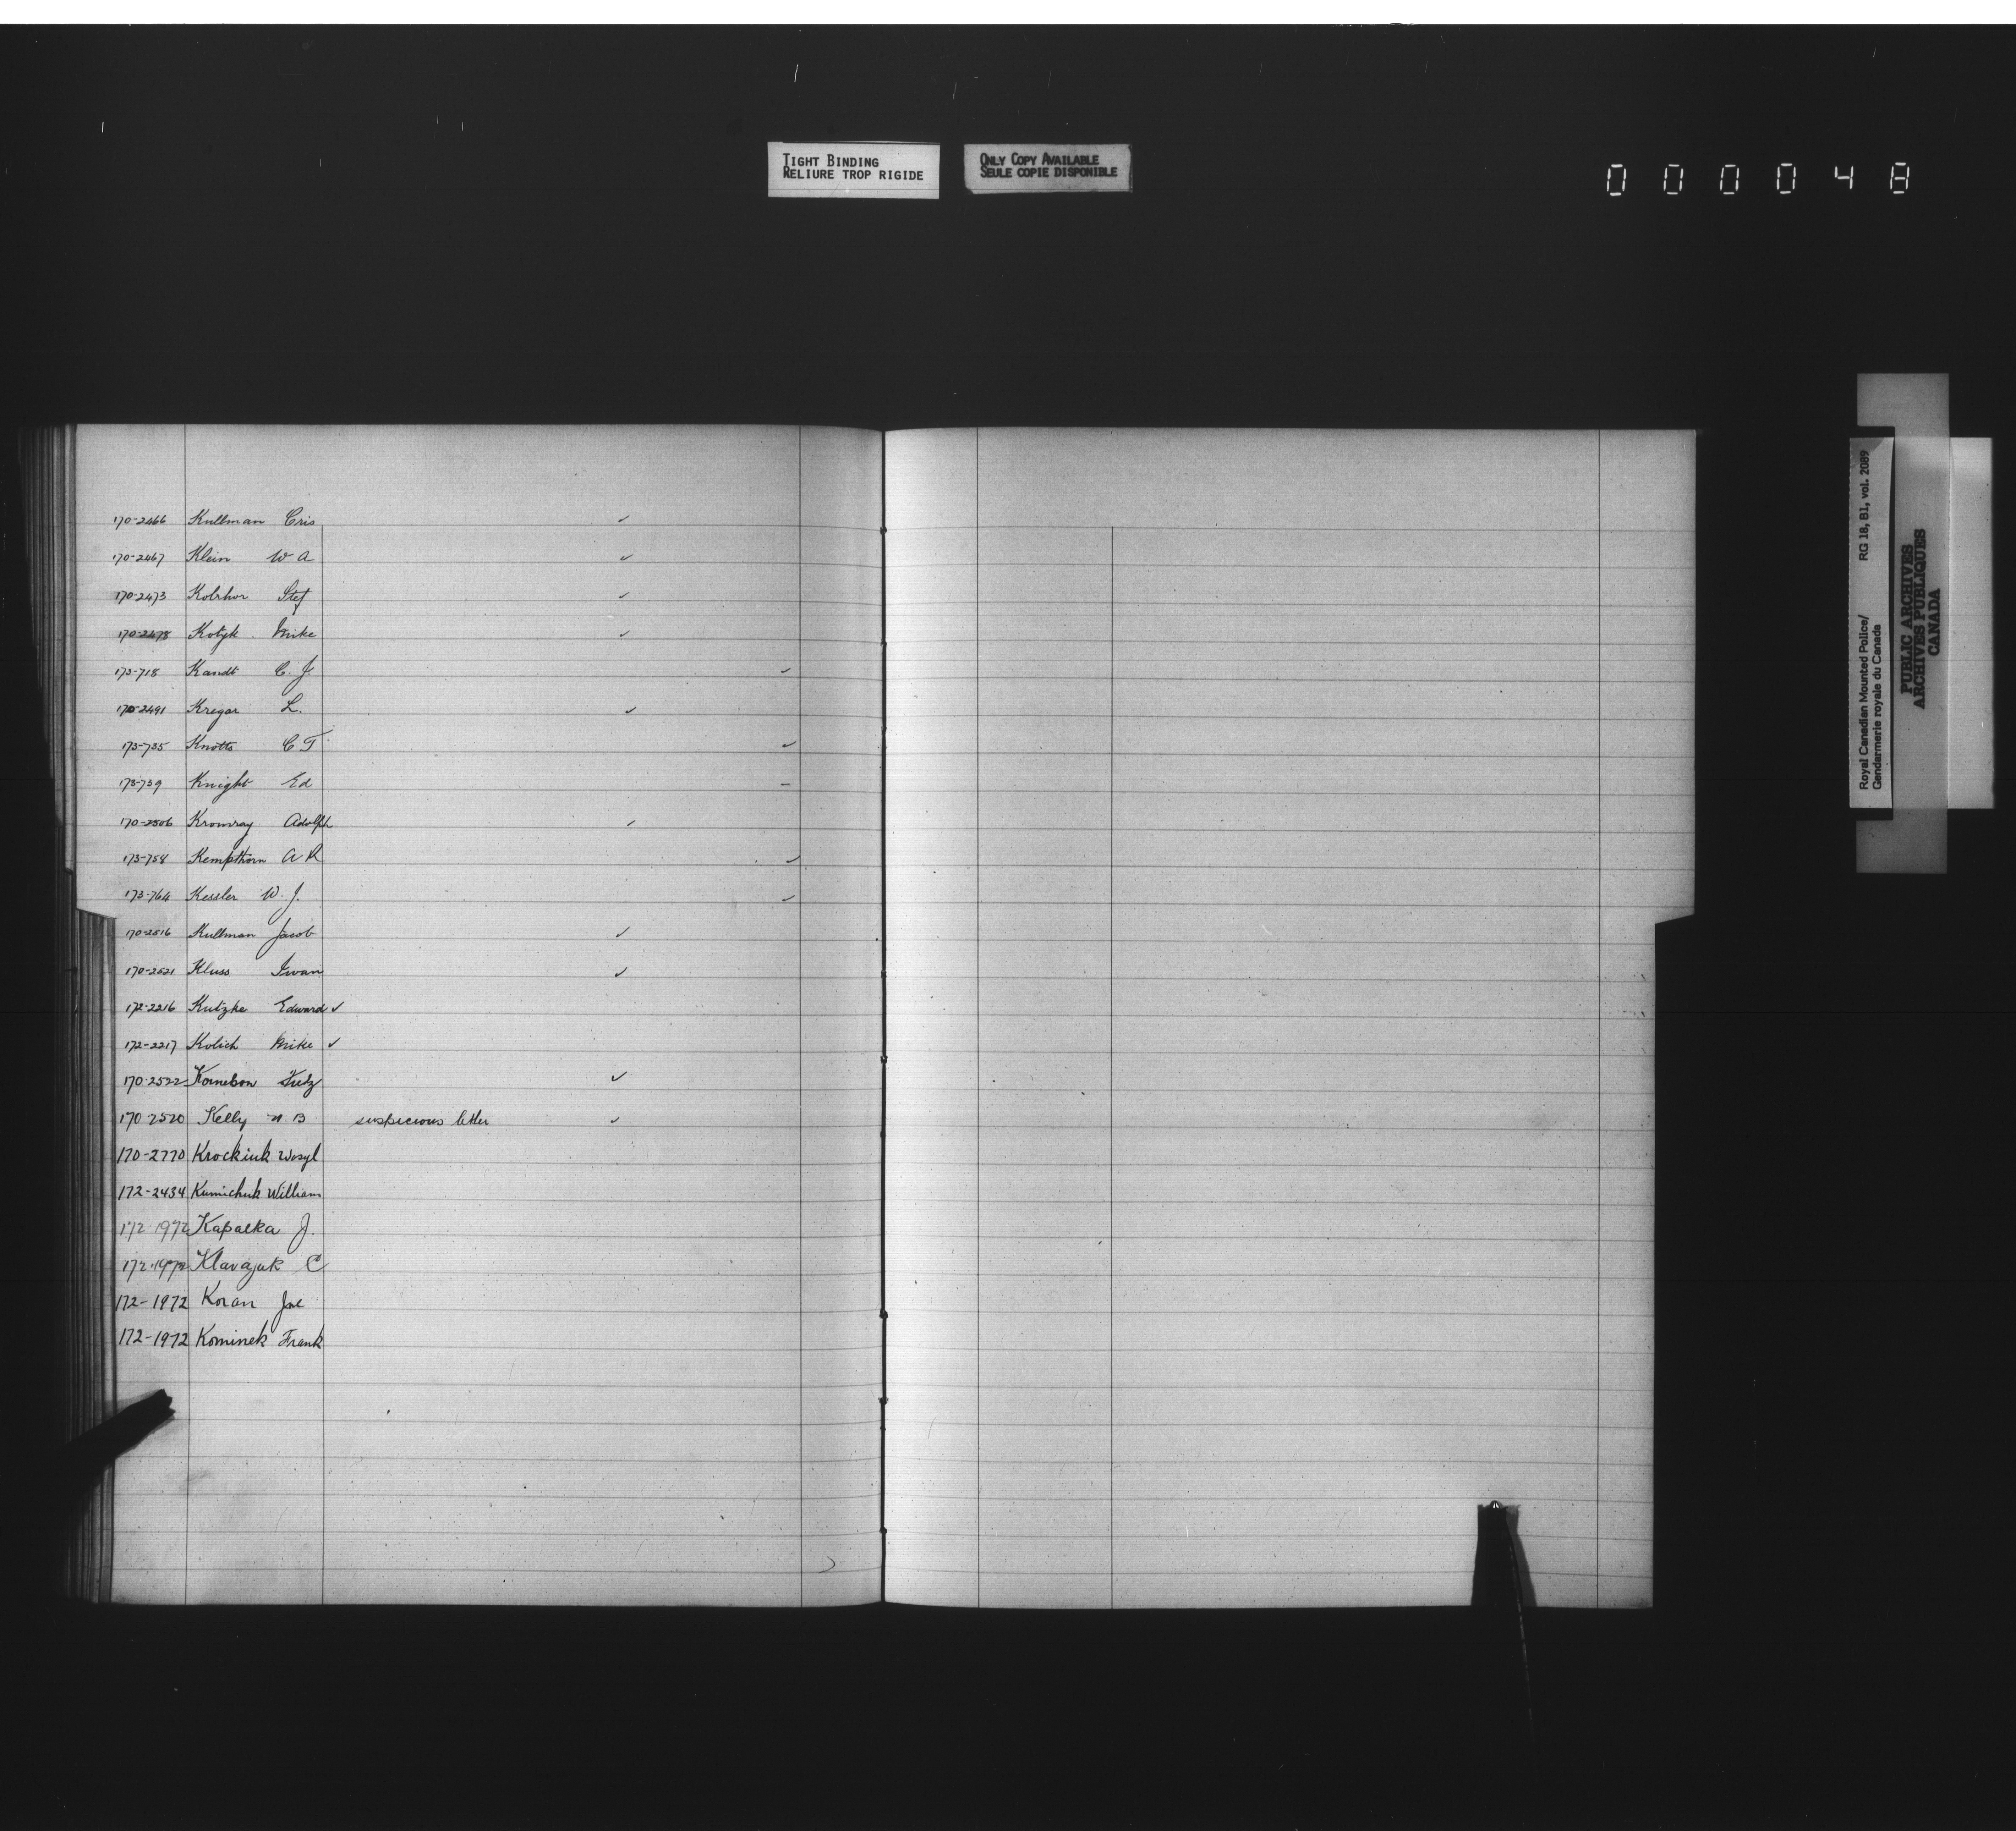 TIGHT BINDING
RELIURE TROP RIGIDE
ONLY COPY AVAILABLE
SEULE COPIE DISPONIBLE
000048
170-2466 Kullman Cris ✓
170-2467 Klein W A ✓
170-2473 Stef ✓
170-2478 Kotyk Mike ✓
173-718 Kandt C. J. ✓
170-2491 Kregar L. ✓
173-735 Knotts C T ✓
173-739 Knight Ed –
170-2506 Kromray Adolph ✓
173-758 Kempthorn A R ✓
173-764 Kessler W. J. ✓
170-2516 Kullman Jacob ✓
170-2521 Kluss Iwan ✓
172-2216 Kutzke Edward ✓
172-2217 Kolich Mike ✓
170-2522 ✓
170-2520 Kelly N. B suspicious letter ✓
170-2770 Krockiuk Wasyl
172-2434 Kumichuk William
172-1972 Kapalka J.
172-1972 Klavajuk C
172-1972 Koran Joe
172-1972 Kominek Frank
Royal Canadian Mounted Police/ RG 18, B1, vol. 2089
Gendarmerie royale du Canada
PUBLIC ARCHIVES
ARCHIVES PUBLIQUES
CANADA